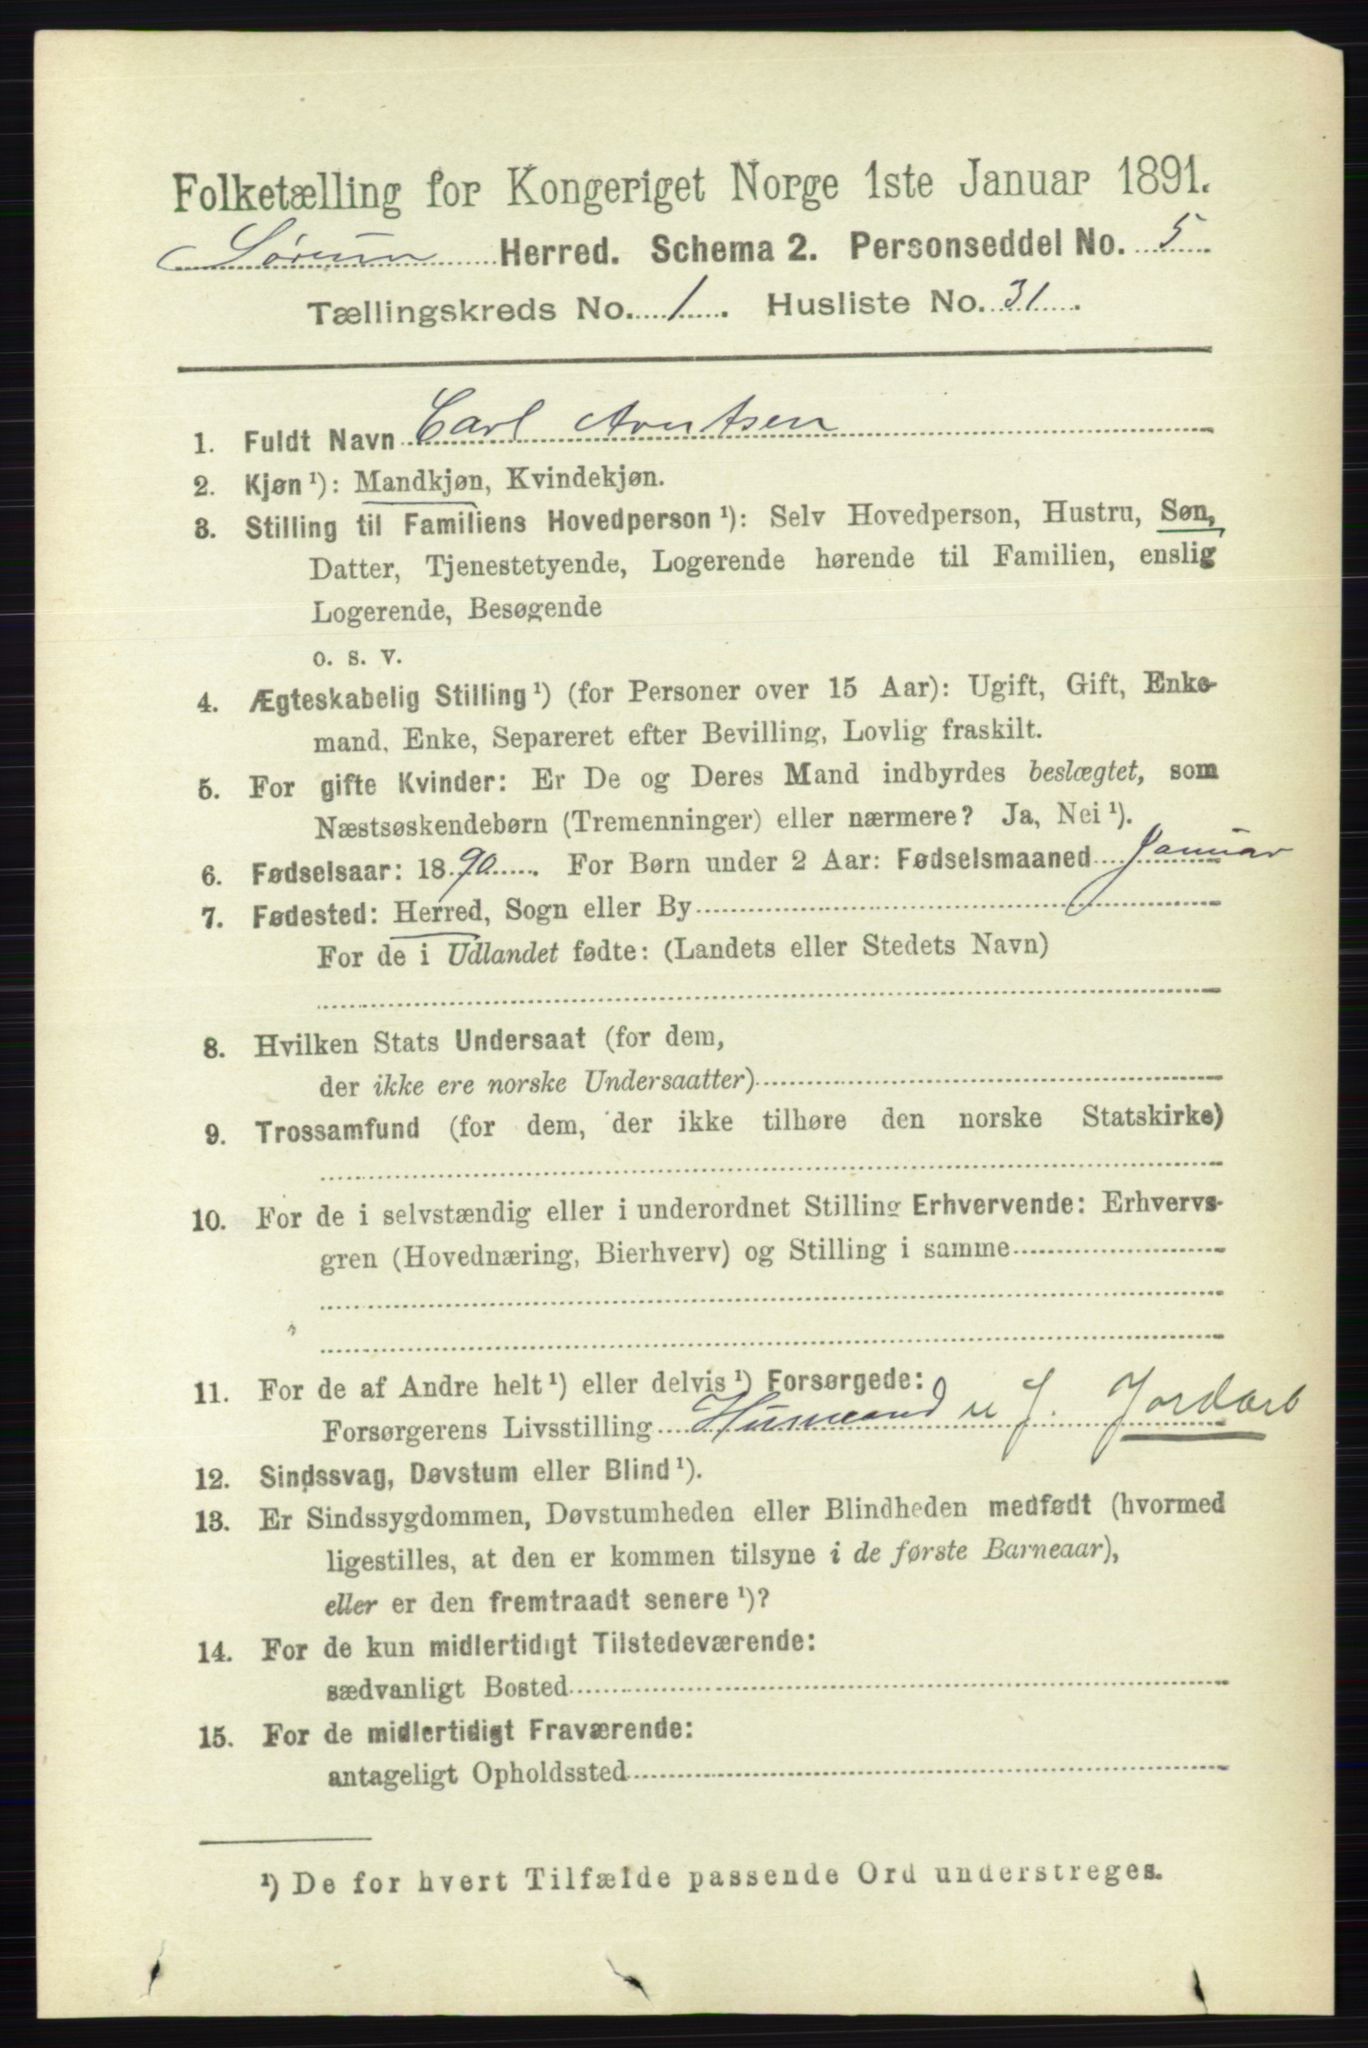 Folketælling for Kongeriget Norge 1ste Januar 1891.
Sørum Herred. Schema 2. Personseddel No. 5
Tællingskreds No. 1. Husliste No. 31.
1. Fuldt Navn Carl Arntsen
2. Kjøn¹): Mandkjøn, Kvindekjøn.
3. Stilling til Familiens Hovedperson¹): Selv Hovedperson, Hustru, Søn,
Datter, Tjenestetyende, Logerende hørende til Familien, enslig
Logerende, Besøgende
o. s. v.
4. Ægteskabelig Stilling¹) (for Personer over 15 Aar): Ugift, Gift, Enke-
mand, Enke, Separeret efter Bevilling, Lovlig fraskilt.
5. For gifte Kvinder: Er De og Deres Mand indbyrdes beslægtet, som
Næstsøskendebørn (Tremenninger) eller nærmere? Ja, Nei¹).
6. Fødselsaar: 1890. For Børn under 2 Aar: Fødselsmaaned Januar
7. Fødested: Herred, Sogn eller By
For de i Udlandet fødte: (Landets eller Stedets Navn)
8. Hvilken Stats Undersaat (for dem,
der ikke ere norske Undersaatter)
9. Trossamfund (for dem, der ikke tilhøre den norske Statskirke)
10. For de i selvstændig eller i underordnet Stilling Erhvervende: Erhvervs-
gren (Hovednæring, Bierhverv) og Stilling i samme
11. For de af Andre helt¹) eller delvis¹) Forsørgede:
Forsørgerens Livsstilling Husmand u J. Jordarb
12. Sindssvag, Døvstum eller Blind¹).
13. Er Sindssygdommen, Døvstumheden eller Blindheden medfødt (hvormed
ligestilles, at den er kommen tilsyne i de første Barneaar),
eller er den fremtraadt senere¹)?
14. For de kun midlertidigt Tilstedeværende:
sædvanligt Bosted
15. For de midlertidigt Fraværende:
antageligt Opholdssted
¹) De for hvert Tilfælde passende Ord understreges.